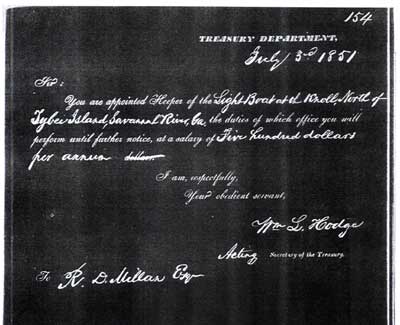 154
TREASURY DEPARTMENT,
July 3rd 1851
Sir:
You are appointed Keeper of the Light Boat at Knoll, North of
Tybee Island, Savannah River, Ga, the duties of which office you will
perform until farther notice, at a salary of Five hundred dollars
per annum dollars.
I am, respectfully,
Your obedient servant,
Wm L. Hodge
Acting Secretary of the Treasury.
To R. D. Millan Esqr